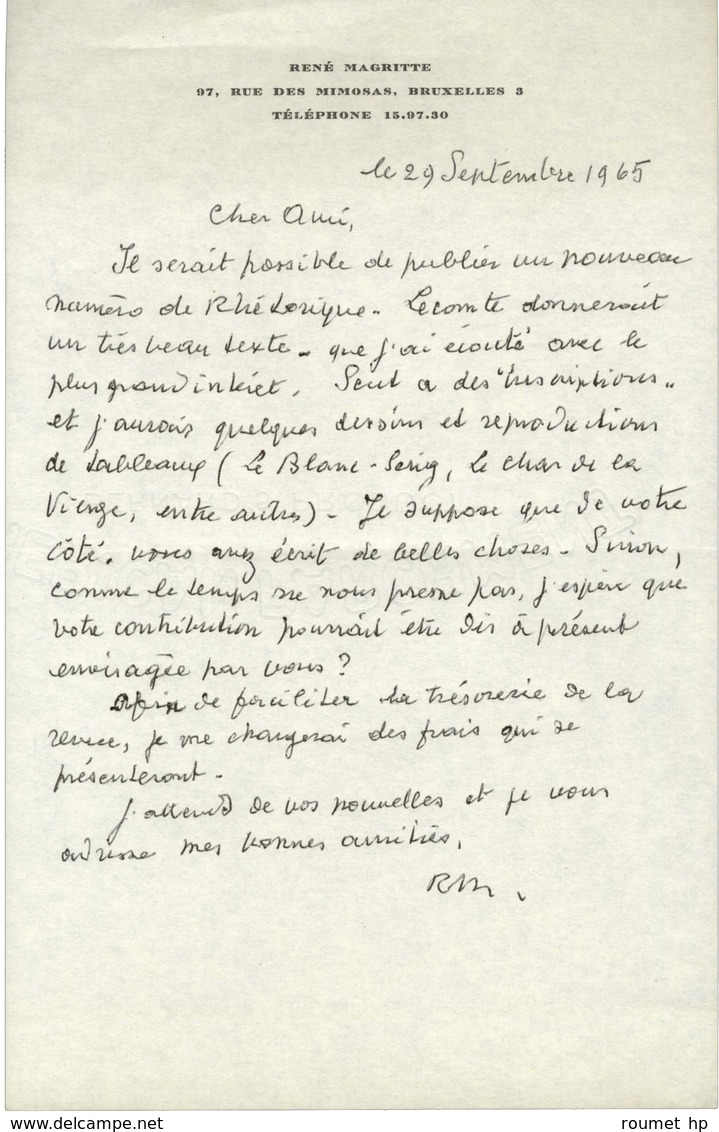 RENÉ MAGRITTE
97, RUE DES MIMOSAS, BRUXELLES 3
TÉLÉPHONE 15.97.30
le 29 Septembre 1965
Cher Ami,
Il serait possible de publier un nouveau
numéro de Rhétorique. Lecomte donnerait
un très beau texte - que j'ai écouté avec le
plus grand intérêt. a des "Inscriptions"
et j'aurais quelques dessins et reproductions
de tableaux (Le Blanc-Seing, Le char de la
Vierge, entre autres) - Je suppose que de votre
côté, vous avez écrit de belles choses - Sinon,
comme le temps ne nous presse pas, j'espère que
votre contribution pourrait être dès à présent
envisagée par vous ?
Afin de faciliter la trésorerie de la
revue, je me chargerai des frais qui se
présenteront -
J'attend de vos nouvelles et je vous
adresse mes bonnes amitiés,
RM.
roumet hp